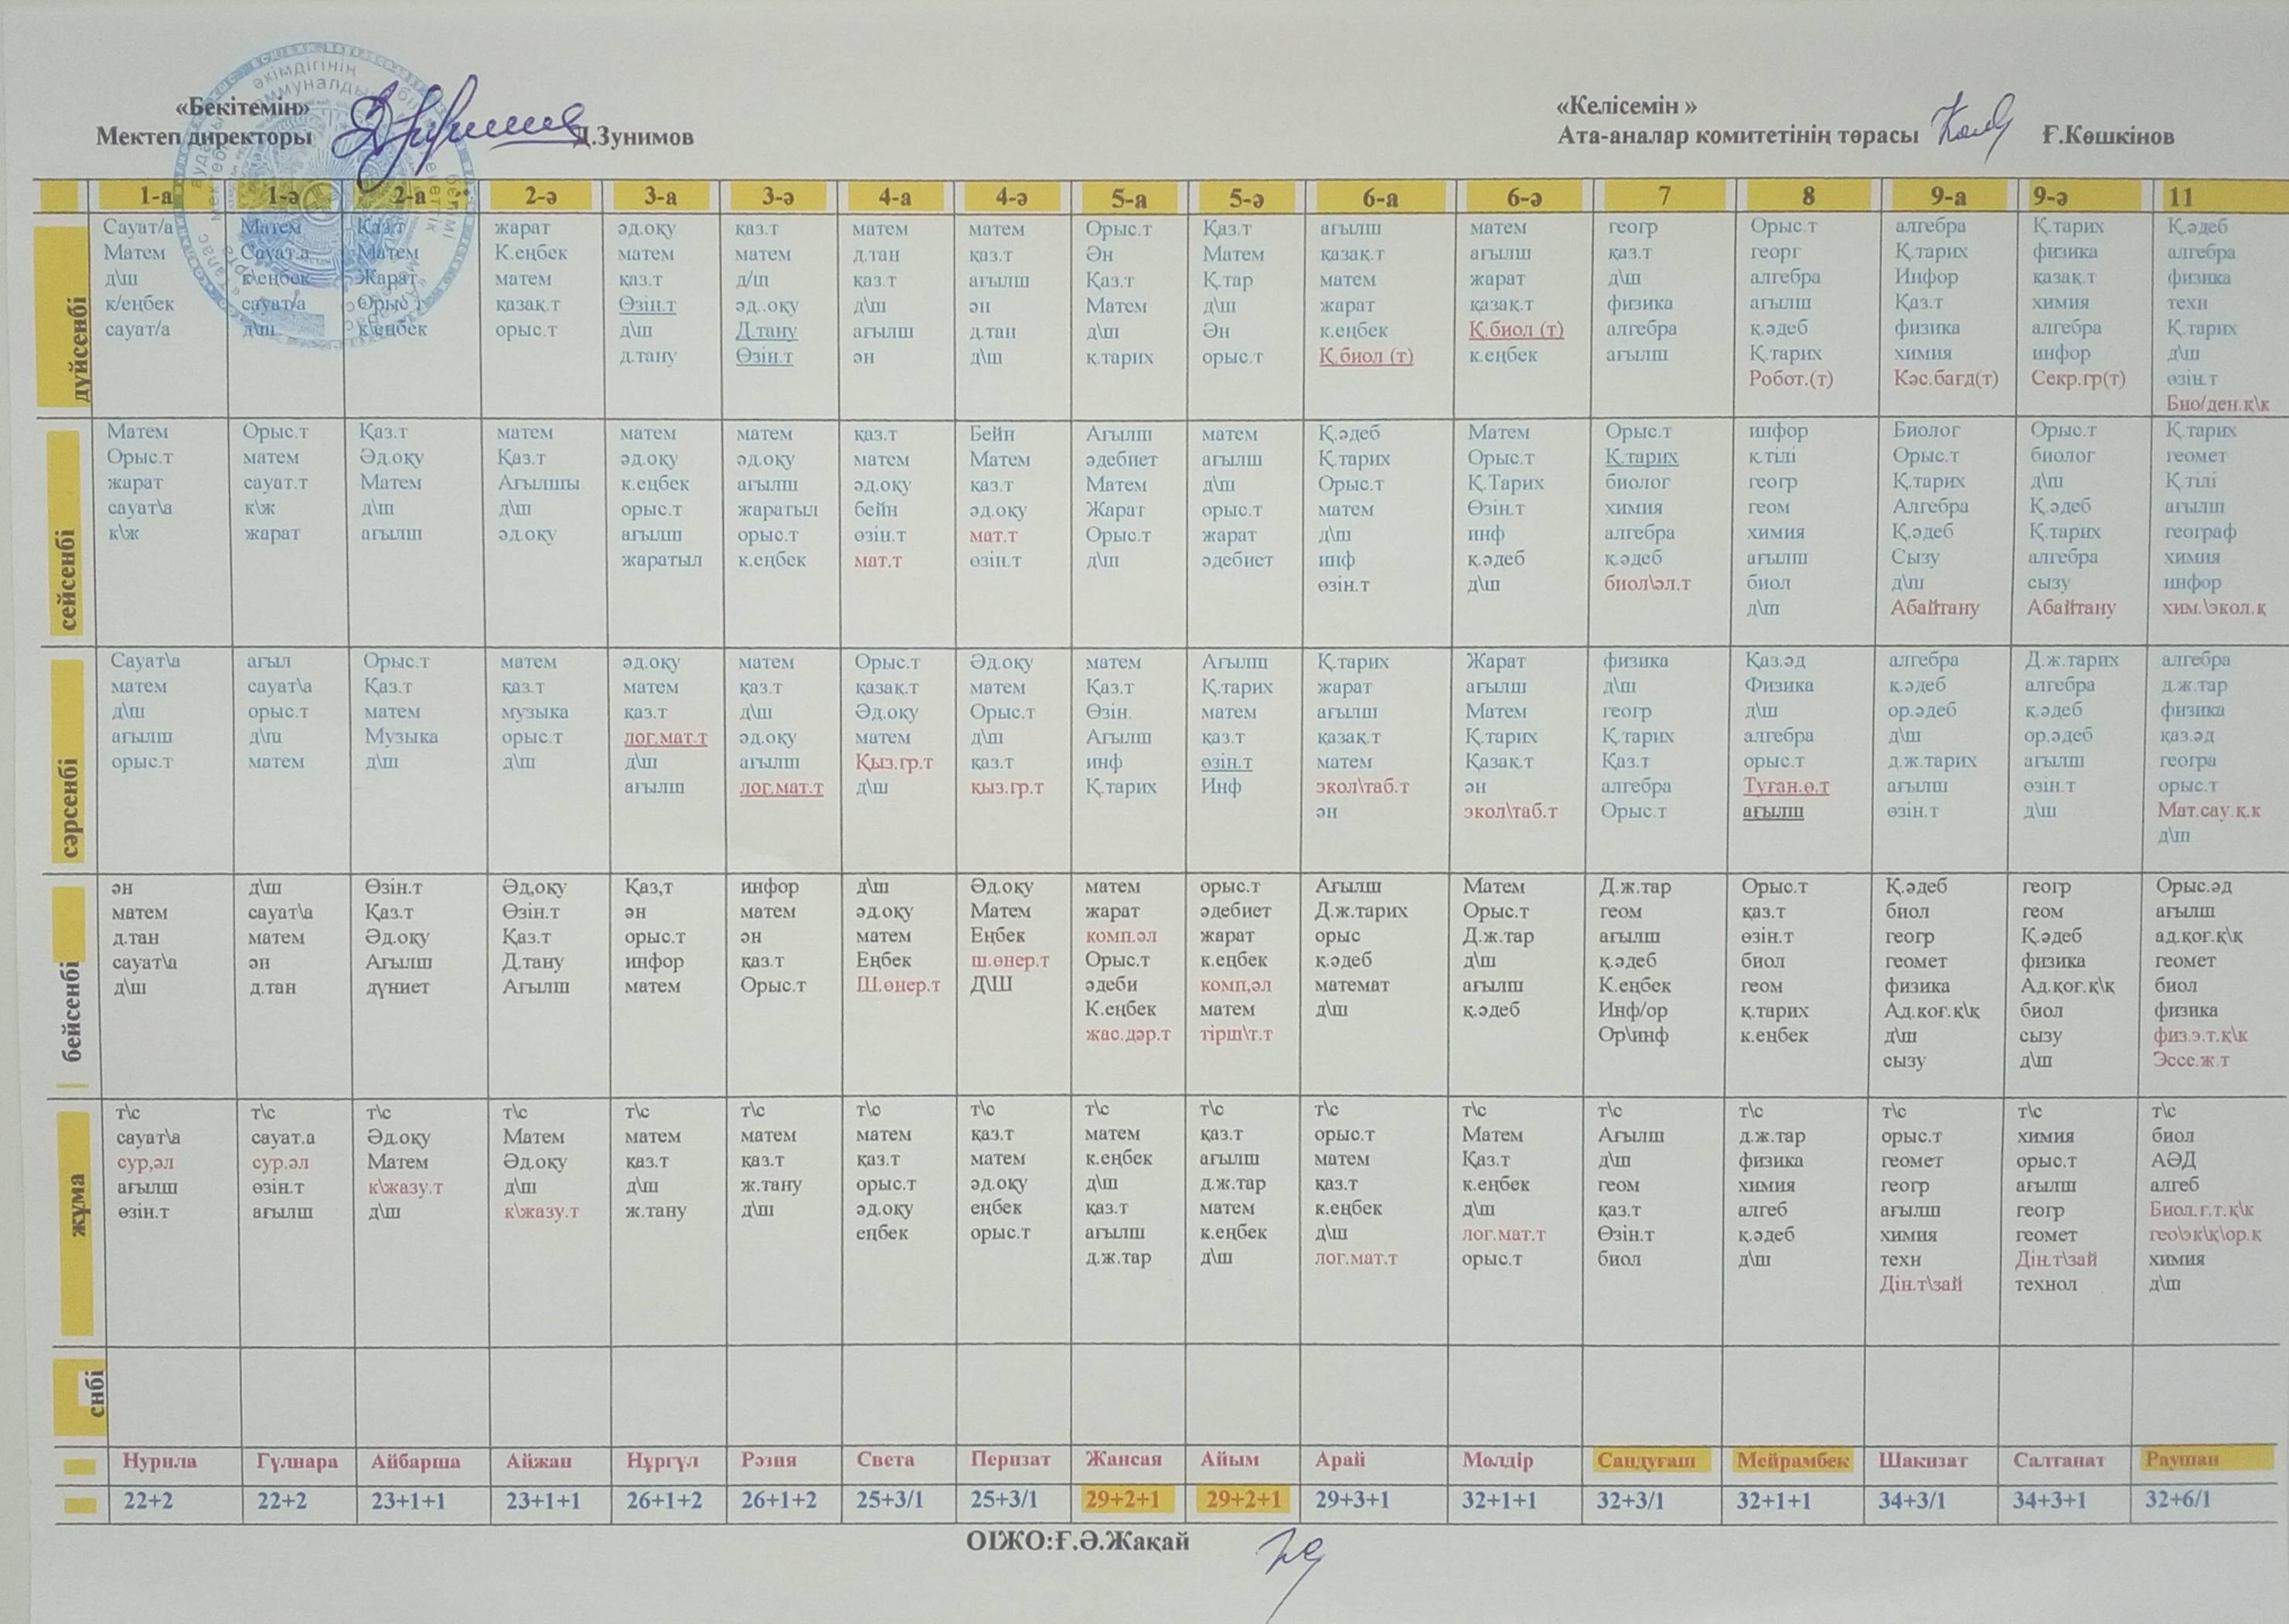 «Бекітемін»
«Келісемін »
Мектеп директоры Д.Зунимов
Ата-аналар комитетінің төрасы Ғ.Көшкінов
1-а 1-ә 2-а 2-ә 3-а 3-ә 4-а 4-ә 5-а 5-ә 6-а 6-ә 7 8 9-а 9-ә 11
дүйсенбі
Сауат/а Матем Қаз.т жарат әд.оқу қаз.т матем матем Орыс.т Қаз.т ағылш матем геогр Орыс.т алгебра Қ.тарих Қ.әдеб
Матем Сауат.а Матем К.еңбек матем матем д.тан қаз.т Ән Матем казақ.т ағылш қаз.т георг Қ.тарих физика алгебра
д\ш к\еңбек Жарат матем қаз.т д/ш қаз.т ағылш Қаз.т Қ.тар матем жарат д\ш алгебра Инфор казақ.т физика
к/еңбек сауат/а Орыс т қазақ.т Өзін.т әд..оқу д\ш ән Матем д\ш жарат қазақ.т физика ағылш Қаз.т химия техн
сауат/а д\ш к.еңбек орыс.т д\ш Д.тану ағылш д.тан д\ш Ән к.еңбек Қ.биол (т) алгебра қ.әдеб физика алгебра Қ.тарих
д.тану Өзін.т ән д\ш қ.тарих орыс.т Қ.биол (т) к.еңбек ағылш Қ.тарих химия инфор д\ш
Робот.(т) Кәс.бағд(т) Секр.гр(т) өзін.т
Био/ден.қ\к
сейсенбі
Матем Орыс.т Қаз.т матем матем матем қаз.т Бейн Ағылш матем Қ.әдеб Матем Орыс.т инфор Биолог Орыс.т Қ.тарих
Орыс.т матем Әд.оқу Қаз.т әд.оқу әд.оқу матем Матем әдебиет ағылш Қ.тарих Орыс.т Қ.тарих к.тілі Орыс.т биолог геомет
жарат сауат.т Матем Ағылшы к.еңбек ағылш әд.оқу қаз.т Матем д\ш Орыс.т Қ.Тарих биолог геогр Қ.тарих д\ш Қ.тілі
сауат\а к\ж д\ш д\ш орыс.т жаратыл бейн әд.оқу Жарат орыс.т матем Өзін.т химия геом Алгебра Қ.әдеб ағылш
к\ж жарат ағылш әд.оқу ағылш орыс.т өзін.т мат.т Орыс.т жарат д\ш инф алгебра химия Қ.әдеб Қ.тарих географ
жаратыл к.еңбек мат.т өзін.т д\ш әдебиет инф қ.әдеб қ.әдеб ағылш Сызу алгебра химия
өзін.т д\ш биол\әл.т биол д\ш сызу инфор
д\ш Абайтану Абайтану хим.\экол.қ
сәрсенбі
Сауат\а ағыл Орыс.т матем әд.оқу матем Орыс.т Әд.оқу матем Ағылш Қ.тарих Жарат физика Қаз.әд алгебра Д.ж.тарих алгебра
матем сауат\а Қаз.т қаз.т матем қаз.т қазақ.т матем Қаз.т Қ.тарих жарат ағылш д\ш Физика қ.әдеб алгебра д.ж.тар
д\ш орыс.т матем музыка қаз.т д\ш Әд.оқу Орыс.т Өзін. матем ағылш Матем геогр д\ш ор.әдеб қ.әдеб физика
ағылш д\ш Музыка орыс.т лог.мат.т әд.оқу матем д\ш Ағылш қаз.т қазақ.т Қ.тарих Қ.тарих алгебра д\ш ор.әдеб қаз.әд
орыс.т матем д\ш д\ш д\ш ағылш Қыз.гр.т қаз.т инф өзін.т матем Қазақ.т Қаз.т орыс.т д.ж.тарих ағылш геогра
ағылш лог.мат.т д\ш қыз.гр.т Қ.тарих Инф экол\таб.т ән алгебра Туған.ө.т ағылш өзін.т орыс.т
ән экол\таб.т Орыс.т ағылш өзін.т д\ш Мат.сау.қ.к
д\ш
бейсенбі
ән д\ш Өзін.т Әд,оқу Қаз,т инфор д\ш Әд.оқу матем орыс.т Ағылш Матем Д.ж.тар Орыс.т Қ.әдеб геогр Орыс.әд
матем сауат\а Қаз.т Өзін.т ән матем әд.оқу Матем жарат әдебиет Д.ж.тарих Орыс.т геом қаз.т биол геом ағылш
д.тан матем Әд.оқу Қаз.т орыс.т ән матем Еңбек комп.әл жарат орыс Д.ж.тар ағылш өзін.т геогр Қ.әдеб ад.қоғ.қ\қ
сауат\а ән Ағылш Д.тану инфор қаз.т Еңбек ш.өнер.т Орыс.т к.еңбек қ.әдеб д\ш қ.әдеб биол геомет физика геомет
д\ш д.тан дүниет Ағылш матем Орыс.т Ш.өнер.т Д\Ш әдеби комп,әл математ ағылш К.еңбек геом физика Ад.қоғ.қ\қ биол
К.еңбек матем д\ш қ.әдеб Инф/ор қ.тарих Ад.коғ.қ\қ биол физика
жас.дәр.т тірш\т.т Ор\инф к.еңбек д\ш сызу физ.э.т.қ\к
сызу д\ш Эссе.ж.т
жұма
т\с т\с т\с т\с т\с т\с т\с т\с т\с т\с т\с т\с т\с т\с т\с т\с т\с
сауат\а сауат.а Әд.оқу Матем матем матем матем қаз.т матем қаз.т орыс.т Матем Ағылш д.ж.тар орыс.т химия биол
сур,әл сур.әл Матем Әд.оқу қаз.т қаз.т қаз.т матем к.еңбек ағылш матем Қаз.т д\ш физика геомет орыс.т АӘД
ағылш өзін.т к\жазу.т д\ш д\ш ж.тану орыс.т әд.оқу д\ш д.ж.тар қаз.т к.еңбек геом химия геогр ағылш алгеб
өзін.т ағылш д\ш к\жазу.т ж.тану д\ш әд.оқу еңбек қаз.т матем к.еңбек д\ш қаз.т алгеб ағылш геогр Биол.г.т.қ\к
еңбек орыс.т ағылш к.еңбек д\ш лог.мат.т Өзін.т қ.әдеб химия геомет гео\эк\қ\ор.к
д.ж.тар д\ш лог.мат.т орыс.т биол д\ш техн Дін.т\зай химия
Дін.т\зай технол д\ш
снбі
Нурила Гүлнара Айбарша Айжан Нұргүл Рәзия Света Перизат Жансая Айым Арай Молдір Сандуғаш Мейрамбек Шакизат Салтанат Раушан
22+2 22+2 23+1+1 23+1+1 26+1+2 26+1+2 25+3/1 25+3/1 29+2+1 29+2+1 29+3+1 32+1+1 32+3/1 32+1+1 34+3/1 34+3+1 32+6/1
ОІЖО:Ғ.Ә.Жақай